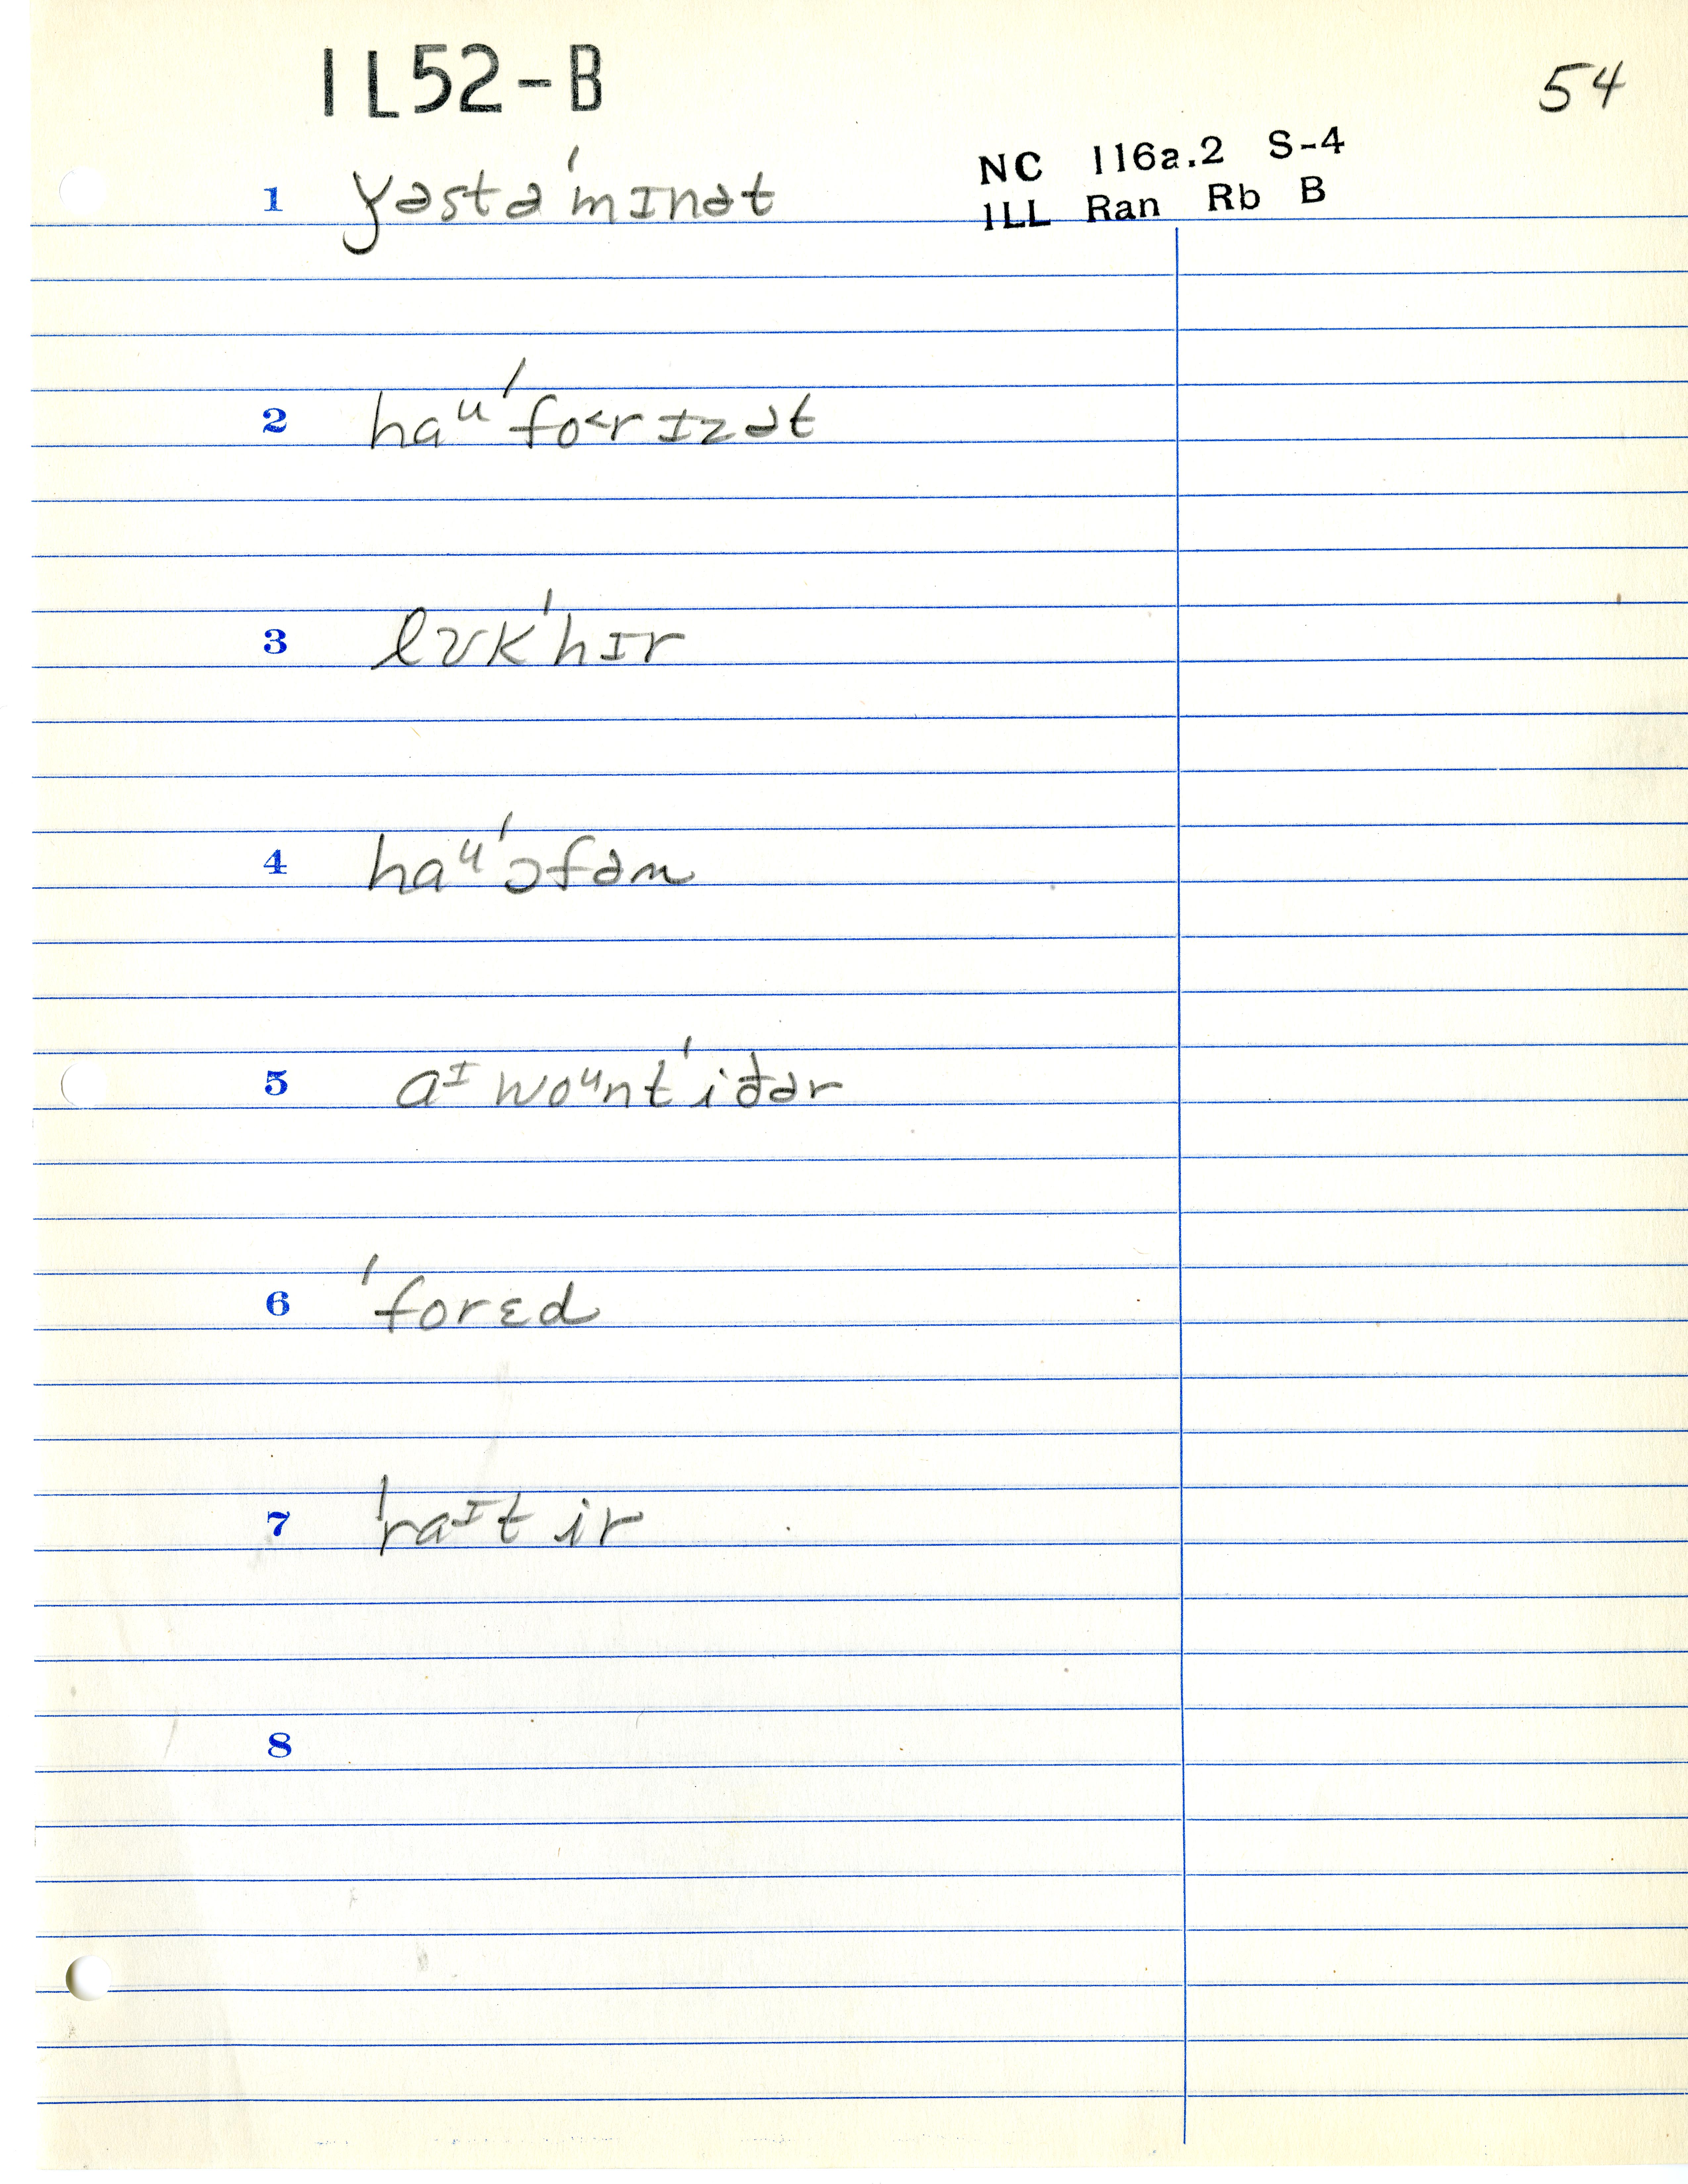 1L52-B
54
NC 116a.2 S-4
ILL Ran Rb B
1 yəstə'mɪnət
2 haᵘ'fo˂rɪzət
3 lʊk'hɪr
4 haᵘ'ɔfən
5 aᴵ woᵘnt'iðər
6 'forɛd
7 'raᴵt ir
8